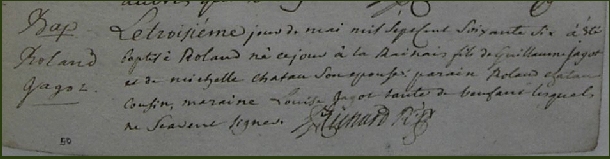 Bap
Roland
Jagot
Le troisieme jour de mai mil sept sent soixante six a été
baptisé Roland né ce jour à la Rainais fils de Guillaume Jagot
et de michelle chatau son epouse; parain Roland chatau
cousin, maraine Louise Jagot tante de l'enfant lesquels
ne scavent signer.